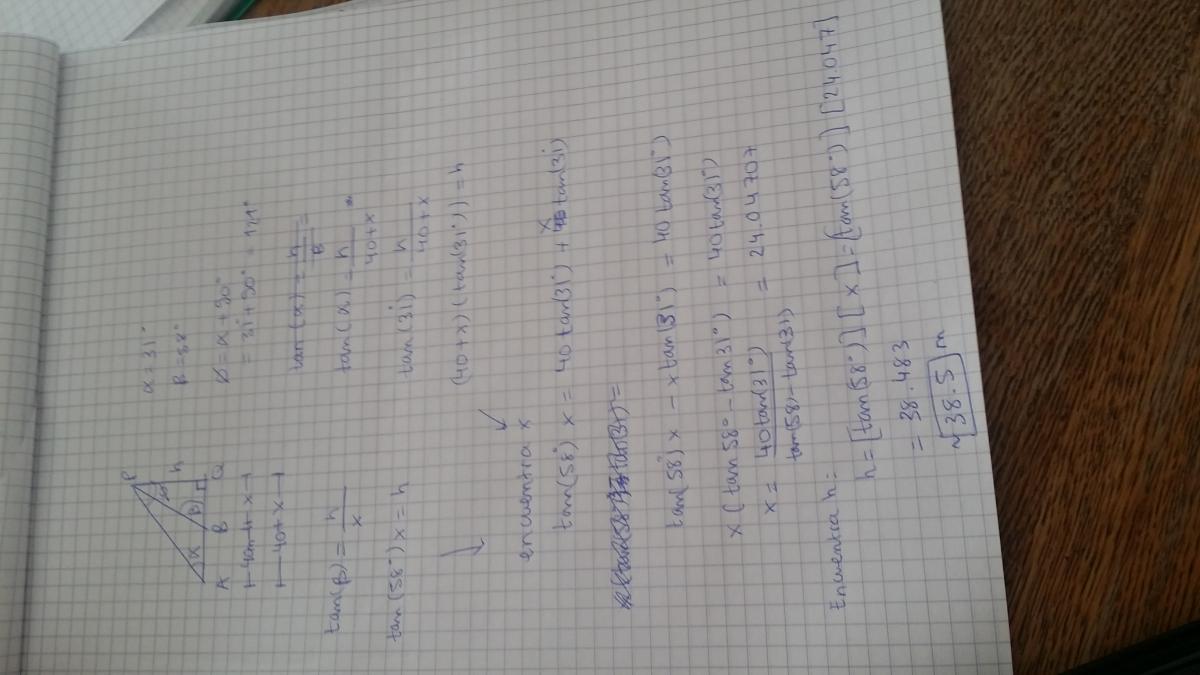 P
α
β
h
A B Q
40m x
40+x
α=31°
β=58°
= 31+90° = 121°
tan(β)=h/x
tan(α)=h/B=
tan(α)=h/40+x
tan(58°)x=h
tan(31°)=h/40+x
(40+x)(tan(31°))=h
encuentra x
tan(58°)x = 40tan(31°)+x tan(31)
tan(58°)x - x tan(31°) = 40 tan(31°)
x(tan 58° - tan 31°) = 40tan(31°)
x = 40tan(31°)/tan(58)-tan(31) = 24.04707
Encuentra h:
h=[tan(58°)][x]=[tan(58°)][24.047]
= 38.483
38.5 m